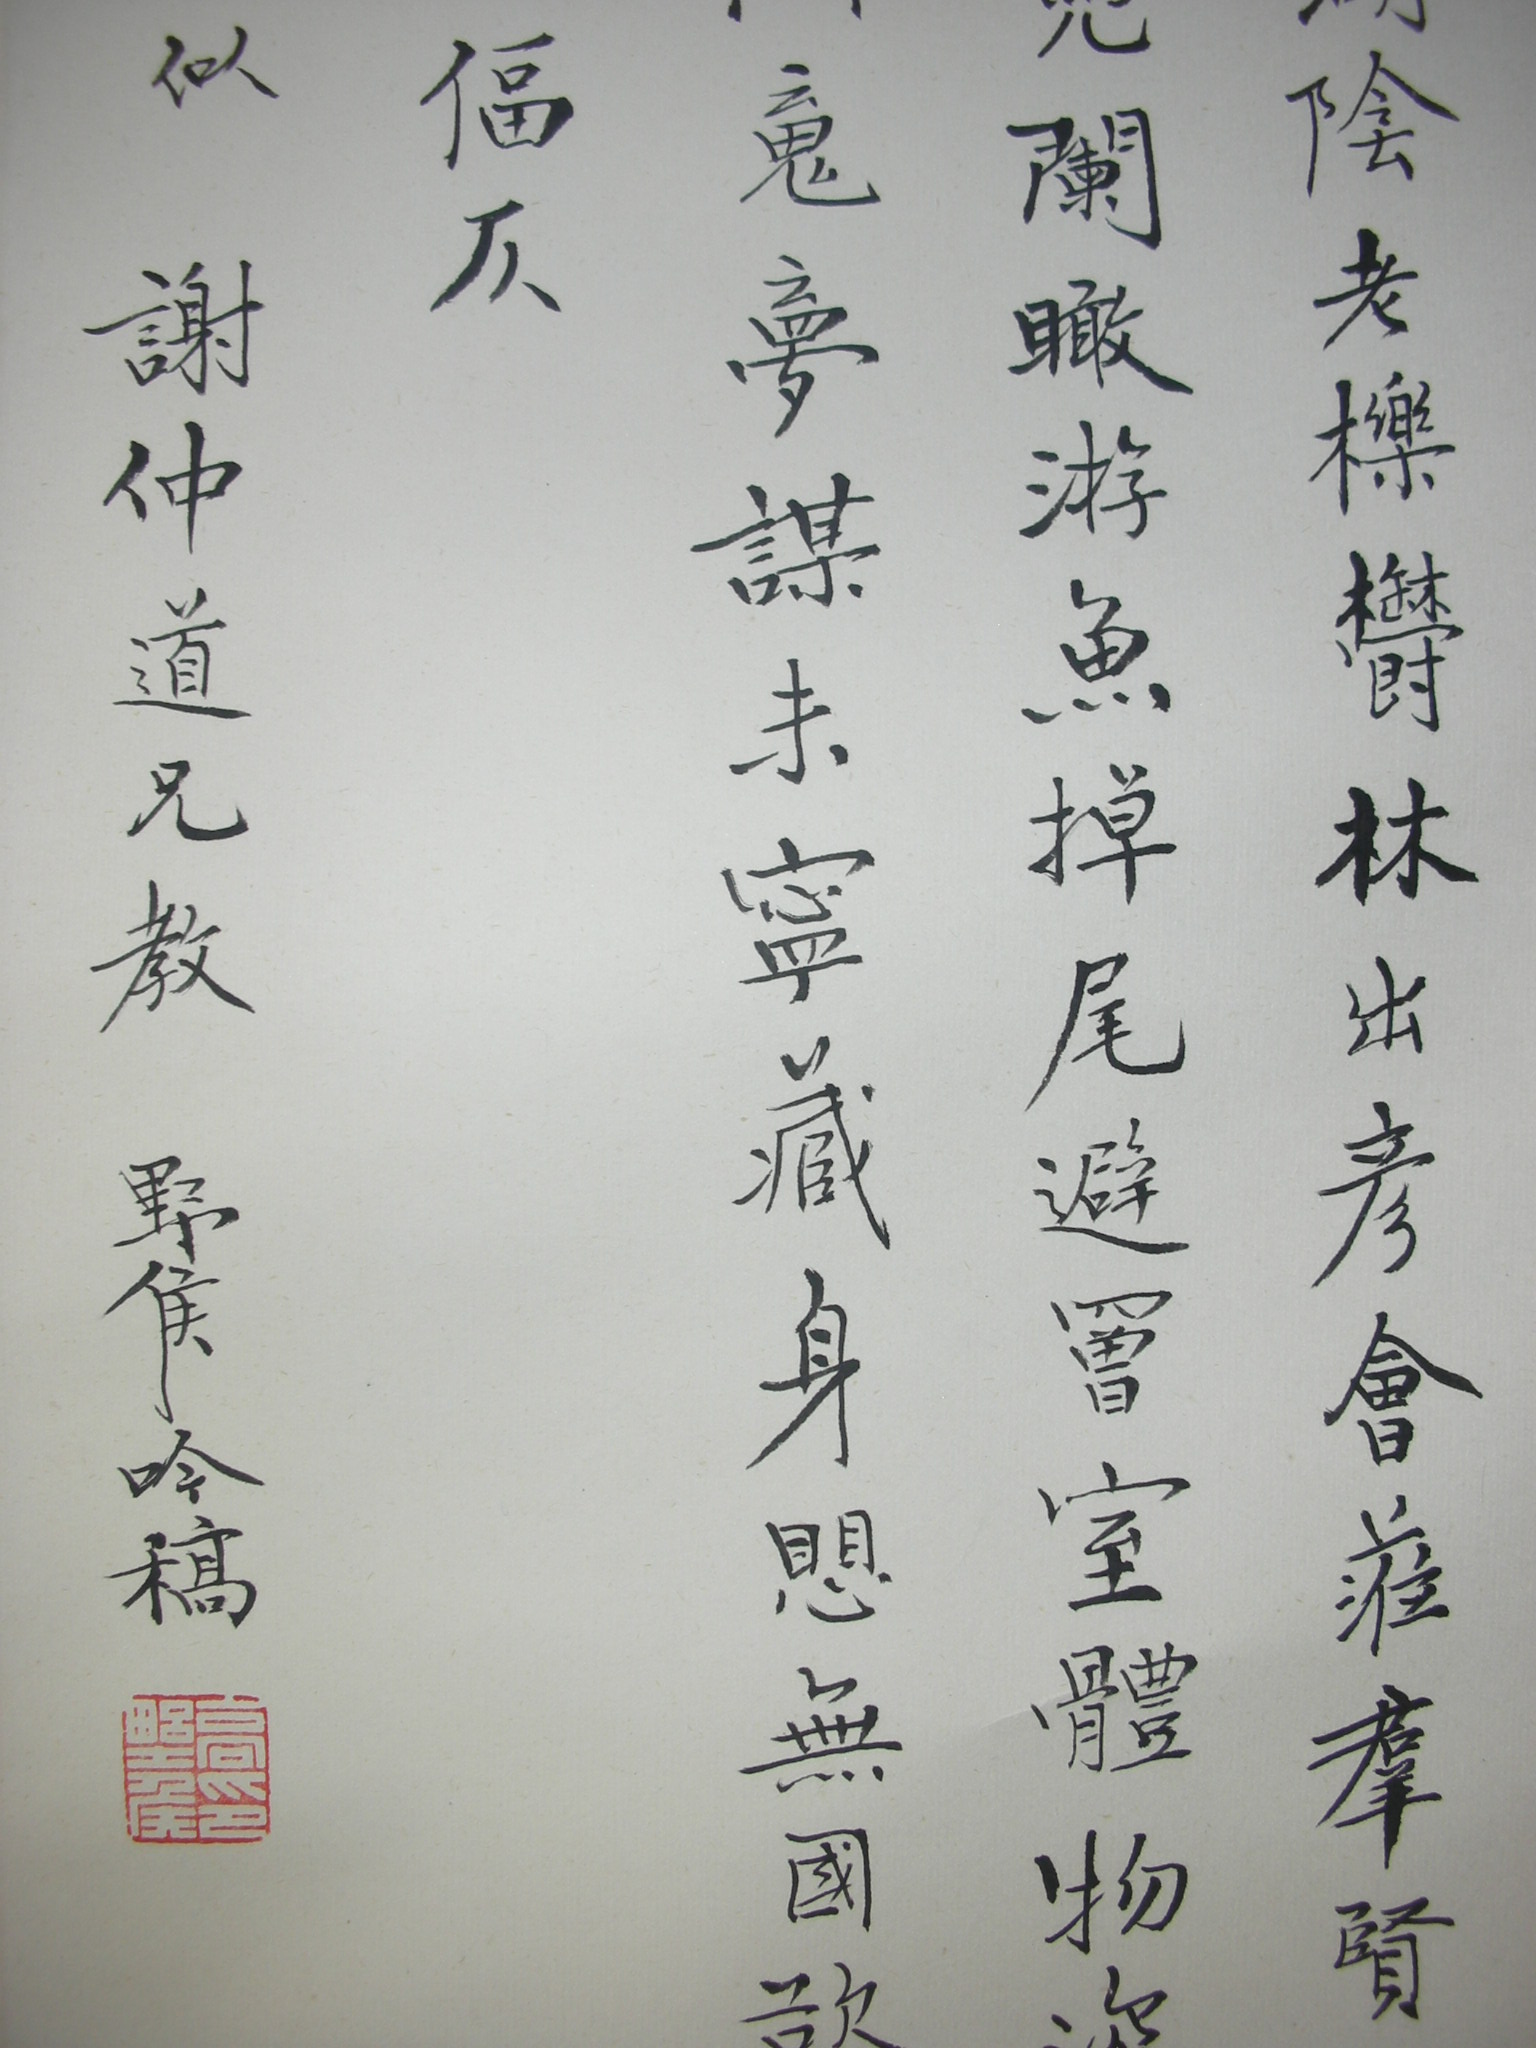 陰老櫟欝林出彥會蒞羣賢
闌瞰游魚掉尾避罾室體物
夢謀未寧藏身思無國
偪仄
似 謝仲道兄教 野侯吟稿